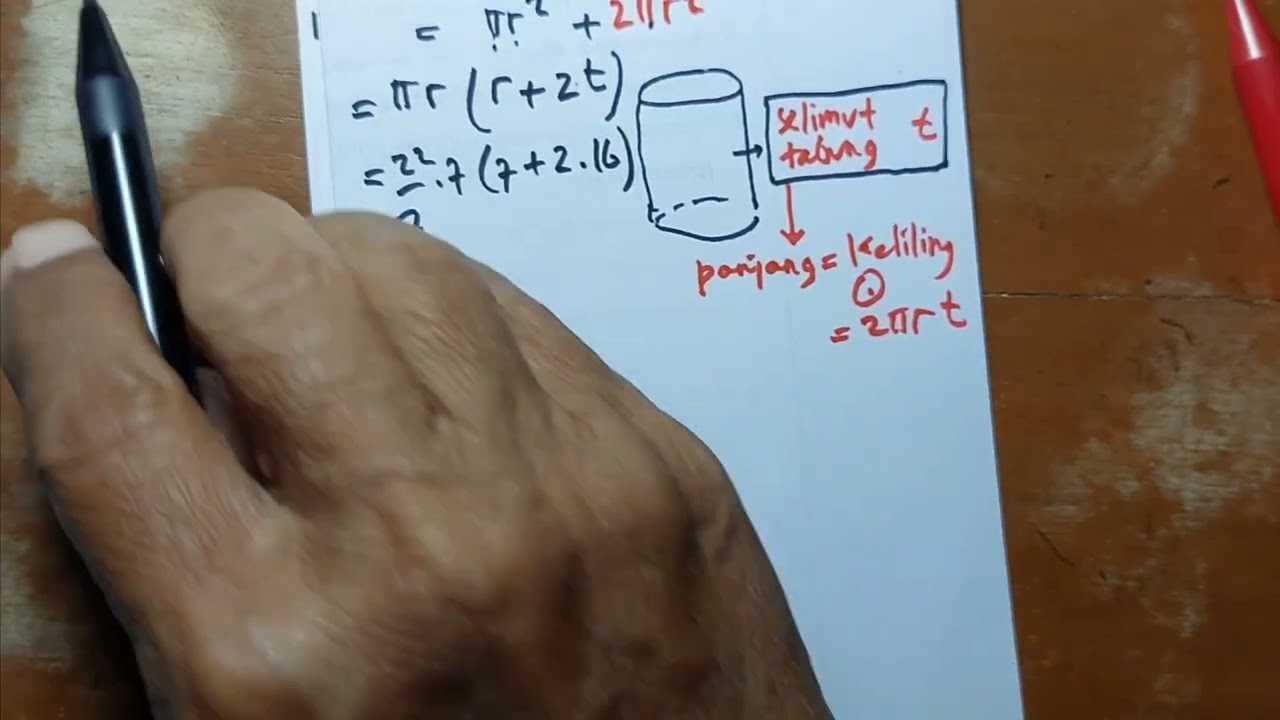 = πr² + 2πrt
= πr (r + 2t)
= 22/7 . 7 (7 + 2 . 16)
selimut
tabung
t
panjang = keliling
= 2πr t